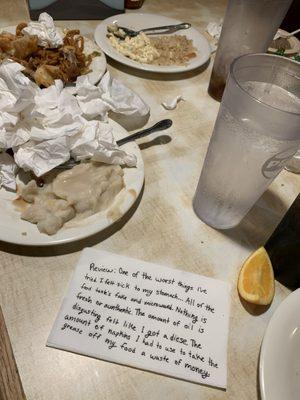 Review: One of the worst things I've
tried I felt sick to my stomach... All of the
food taste's fake and microwaved. Nothing is
fresh or aunthentic. The amount of oil is
disgusting felt like I got a diese. The
amount of napkins I had to use to take the
grease off my food a waste of money.